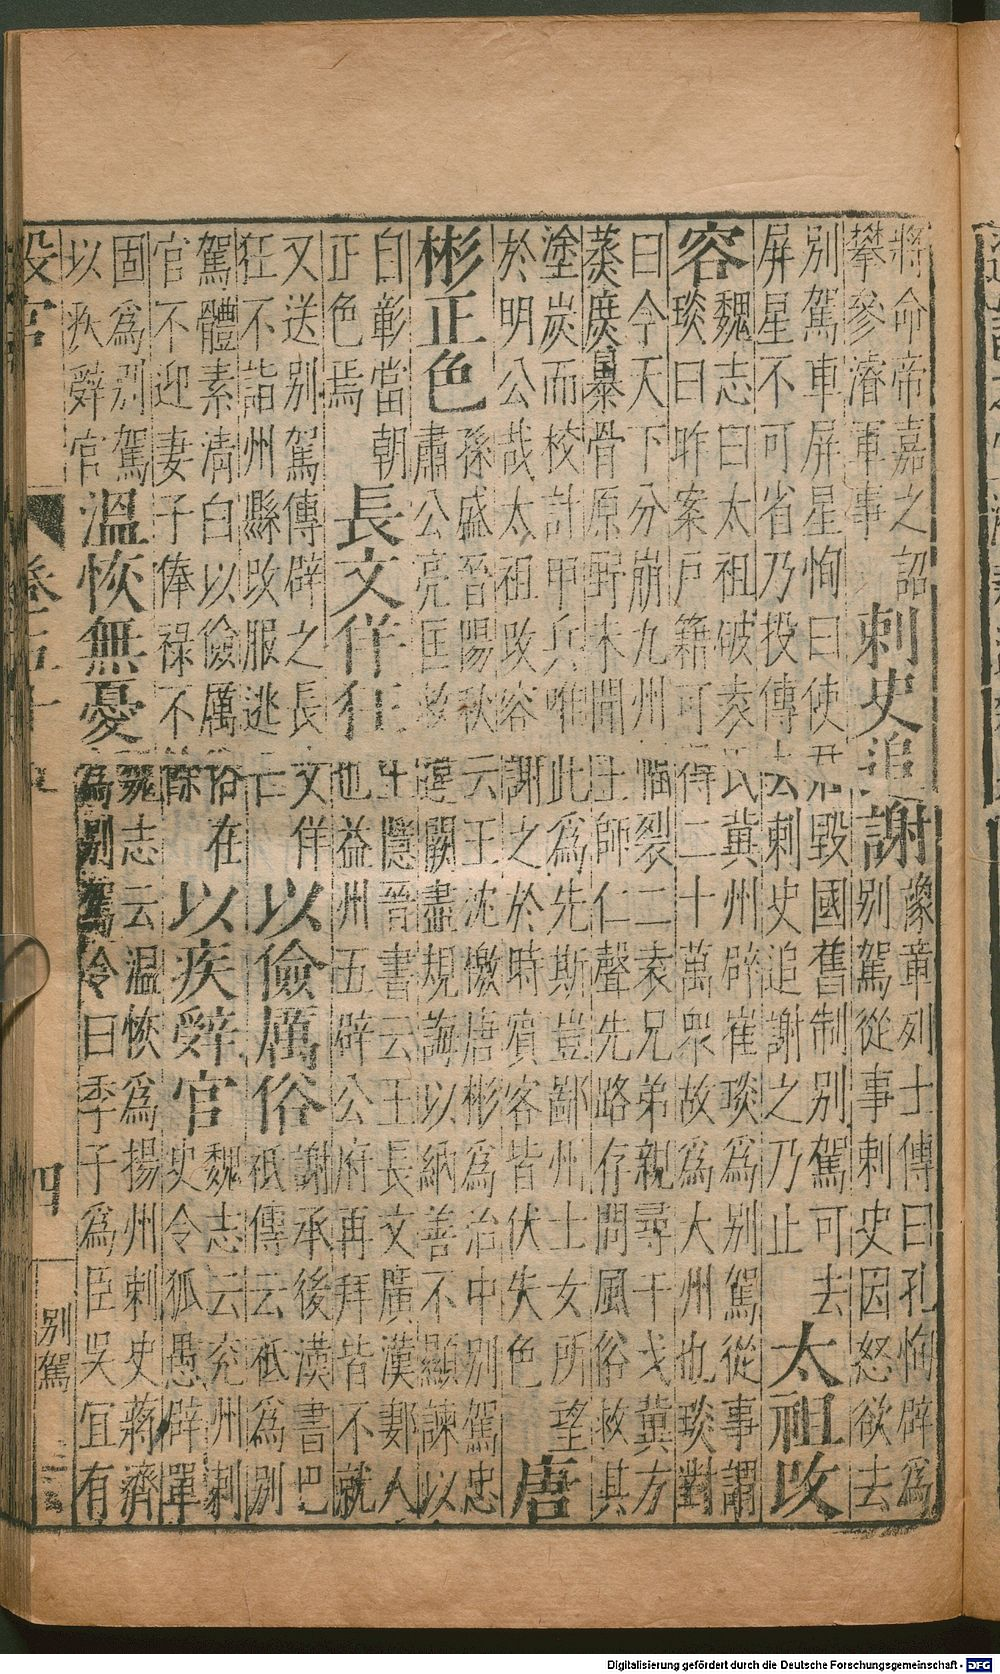 將命帝嘉之詔
攀參濬軍事
刺史追謝
豫章列士傳曰孔恂辟為
别駕從事刺史因怒欲去
别駕車屏星恂曰使君毀國舊制别駕可去
屏星不可省乃投傳去刺史追謝之乃止
太祖改
容
魏志曰太祖破袁氏冀州辟崔琰為别駕從事謂
琰曰昨案戶籍可得二十萬眾故為大州也琰對
曰今天下分崩九州幅裂二袁兄弟親尋干戈冀方
蒸庶暴骨原野未聞王師仁聲先路存問風俗救其
塗炭而校計甲兵唯此為先斯豈鄙州士女所望
於明公哉太祖改容謝之於時賓客皆伏失色
唐
彬正色
孫盛晉陽秋云王沈檄唐彬為治中别駕忠
肅公亮匡救違闕盡規誨以納善不顯諫以
自彰當朝
正色焉
長文佯狂
王隱晉書云王長文廣漢郪人
也益州五辟公府再拜皆不就
又送别駕傳辟之長文佯
狂不詣州縣改服逃亡
以儉厲俗
謝承後漢書巴
祗傳云祗為别
駕體素清白以儉厲俗在
官不迎妻子俸祿不餘
以疾辭官
魏志云兖州刺
史令狐愚辟單
固為别駕
以疾辭官
溫恢無憂
魏志云温恢為揚州刺史蔣濟
為别駕令曰季子為臣吳宜有
設官
四
别駕
Digitalisierung gefördert durch die Deutsche Forschungsgemeinschaft - DFG